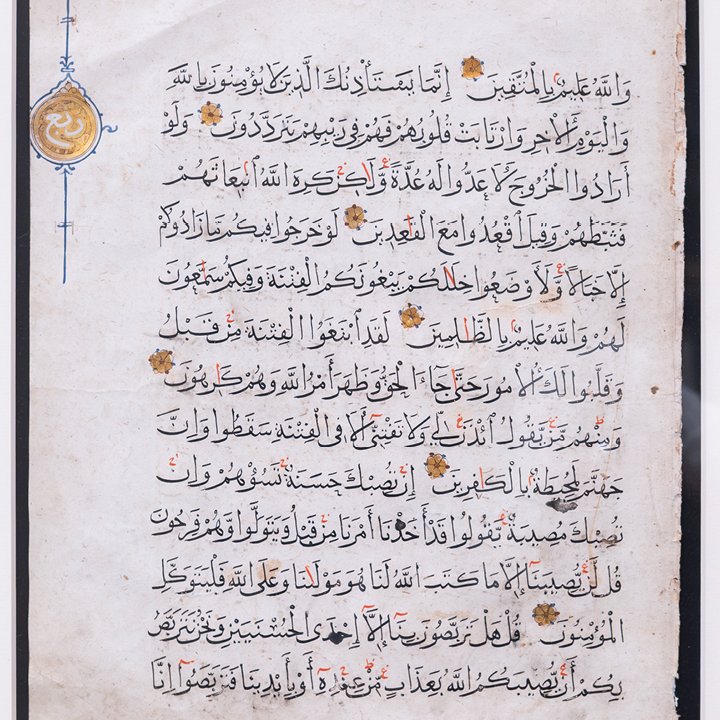 ربع
وَاللَّهُ عَلِيمٌ بِالْمُتَّقِينَ إِنَّمَا يَسْتَأْذِنُكَ الَّذِينَ لَا يُؤْمِنُونَ بِاللَّهِ
وَالْيَوْمِ الْآخِرِ وَارْتَابَتْ قُلُوبُهُمْ فَهُمْ فِي رَيْبِهِمْ يَتَرَدَّدُونَ وَلَوْ
أَرَادُوا الْخُرُوجَ لَأَعَدُّوا لَهُ عُدَّةً وَلَٰكِن كَرِهَ اللَّهُ انْبِعَاثَهُمْ
فَثَبَّطَهُمْ وَقِيلَ اقْعُدُوا مَعَ الْقَاعِدِينَ لَوْ خَرَجُوا فِيكُم مَّا زَادُوكُمْ
إِلَّا خَبَالًا وَلَأَوْضَعُوا خِلَالَكُمْ يَبْغُونَكُمُ الْفِتْنَةَ وَفِيكُمْ سَمَّاعُونَ
لَهُمْ وَاللَّهُ عَلِيمٌ بِالظَّالِمِينَ لَقَدِ ابْتَغَوُا الْفِتْنَةَ مِن قَبْلُ
وَقَلَّبُوا لَكَ الْأُمُورَ حَتَّىٰ جَاءَ الْحَقُّ وَظَهَرَ أَمْرُ اللَّهِ وَهُمْ كَارِهُونَ
وَمِنْهُم مَّن يَقُولُ ائْذَن لِّي وَلَا تَفْتِنِّي أَلَا فِي الْفِتْنَةِ سَقَطُوا وَإِنَّ
جَهَنَّمَ لَمُحِيطَةٌ بِالْكَافِرِينَ إِن تُصِبْكَ حَسَنَةٌ تَسُؤْهُمْ وَإِن
تُصِبْكَ مُصِيبَةٌ يَقُولُوا قَدْ أَخَذْنَا أَمْرَنَا مِن قَبْلُ وَيَتَوَلَّوا وَّهُمْ فَرِحُونَ
قُل لَّن يُصِيبَنَا إِلَّا مَا كَتَبَ اللَّهُ لَنَا هُوَ مَوْلَانَا وَعَلَى اللَّهِ فَلْيَتَوَكَّلِ
الْمُؤْمِنُونَ قُلْ هَلْ تَرَبَّصُونَ بِنَا إِلَّا إِحْدَى الْحُسْنَيَيْنِ وَنَحْنُ نَتَرَبَّصُ
بِكُمْ أَن يُصِيبَكُمُ اللَّهُ بِعَذَابٍ مِّنْ عِندِهِ أَوْ بِأَيْدِينَا فَتَرَبَّصُوا إِنَّا